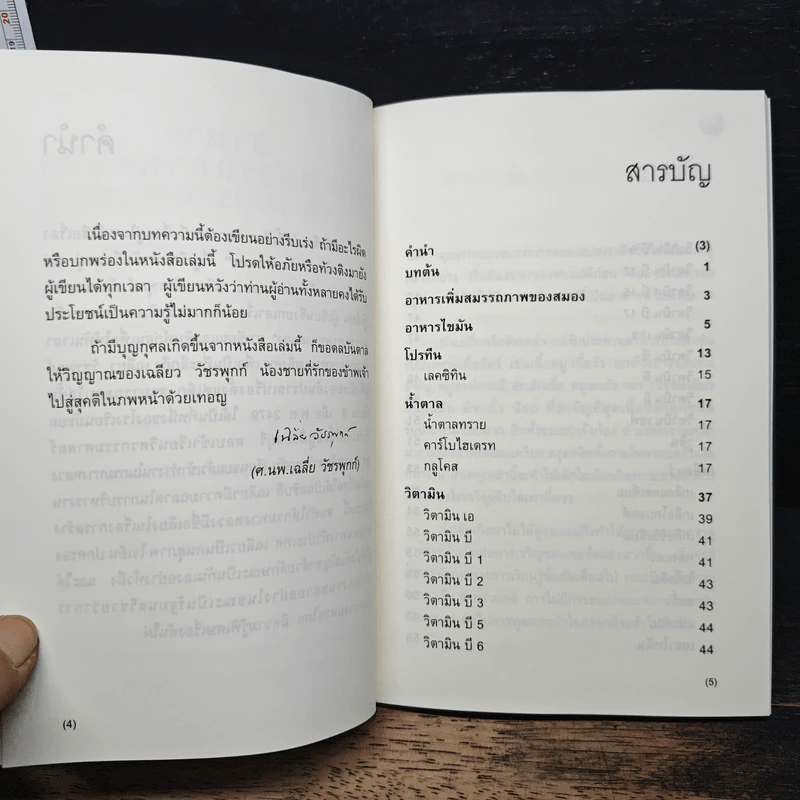 เนื่องจากบทความนี้ต้องเขียนอย่างรีบเร่ง ถ้ามีอะไรผิด
หรือบกพร่องในหนังสือเล่มนี้ โปรดให้อภัยหรือท้วงติงมายัง
ผู้เขียนได้ทุกเวลา ผู้เขียนหวังว่าท่านผู้อ่านทั้งหลายคงได้รับ
ประโยชน์เป็นความรู้ไม่มากก็น้อย
ถ้ามีบุญกุศลเกิดขึ้นจากหนังสือเล่มนี้ ก็ขอดลบันดาล
ให้วิญญาณของเฉลียว วัชรพุกก์ น้องชายที่รักของข้าพเจ้า
ไปสู่สุคติในภพหน้าด้วยเทอญ
เฉลี่ย วัชรพุกก์
(ศ.นพ.เฉลี่ย วัชรพุกก์)
(4)
สารบัญ
คำนำ (3)
บทต้น 1
อาหารเพิ่มสมรรถภาพของสมอง 3
อาหารไขมัน 5
โปรทีน 13
เลคซิทิน 15
น้ำตาล 17
น้ำตาลทราย 17
คาร์โบไฮเดรท 17
กลูโคส 17
วิตามิน 37
วิตามิน เอ 39
วิตามิน บี 41
วิตามิน บี 1 41
วิตามิน บี 2 43
วิตามิน บี 3 43
วิตามิน บี 5 44
วิตามิน บี 6 44
(5)